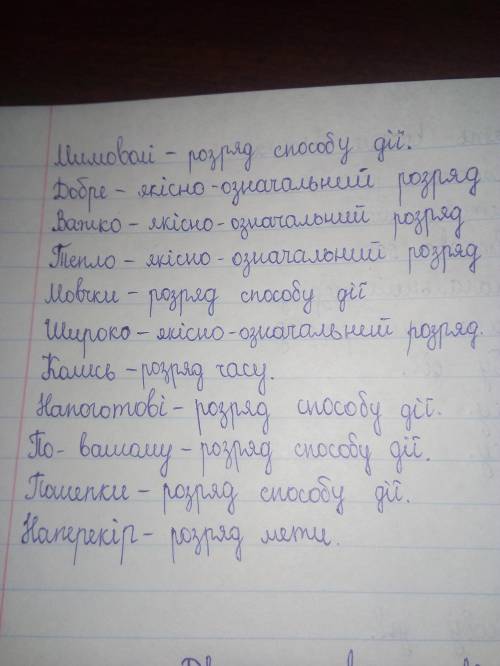 Мимоволі - розряд способу дії.
Добре - якісно-означальний розряд
Важко - якісно-означальний розряд
Тепло - якісно-означальний розряд
Мовчки - розряд способу дії
Широко - якісно-означальний розряд.
Колись - розряд часу.
Напоготові - розряд способу дії.
По-вашому - розряд способу дії.
Пошепки - розряд способу дії.
Наперекір - розряд мети.